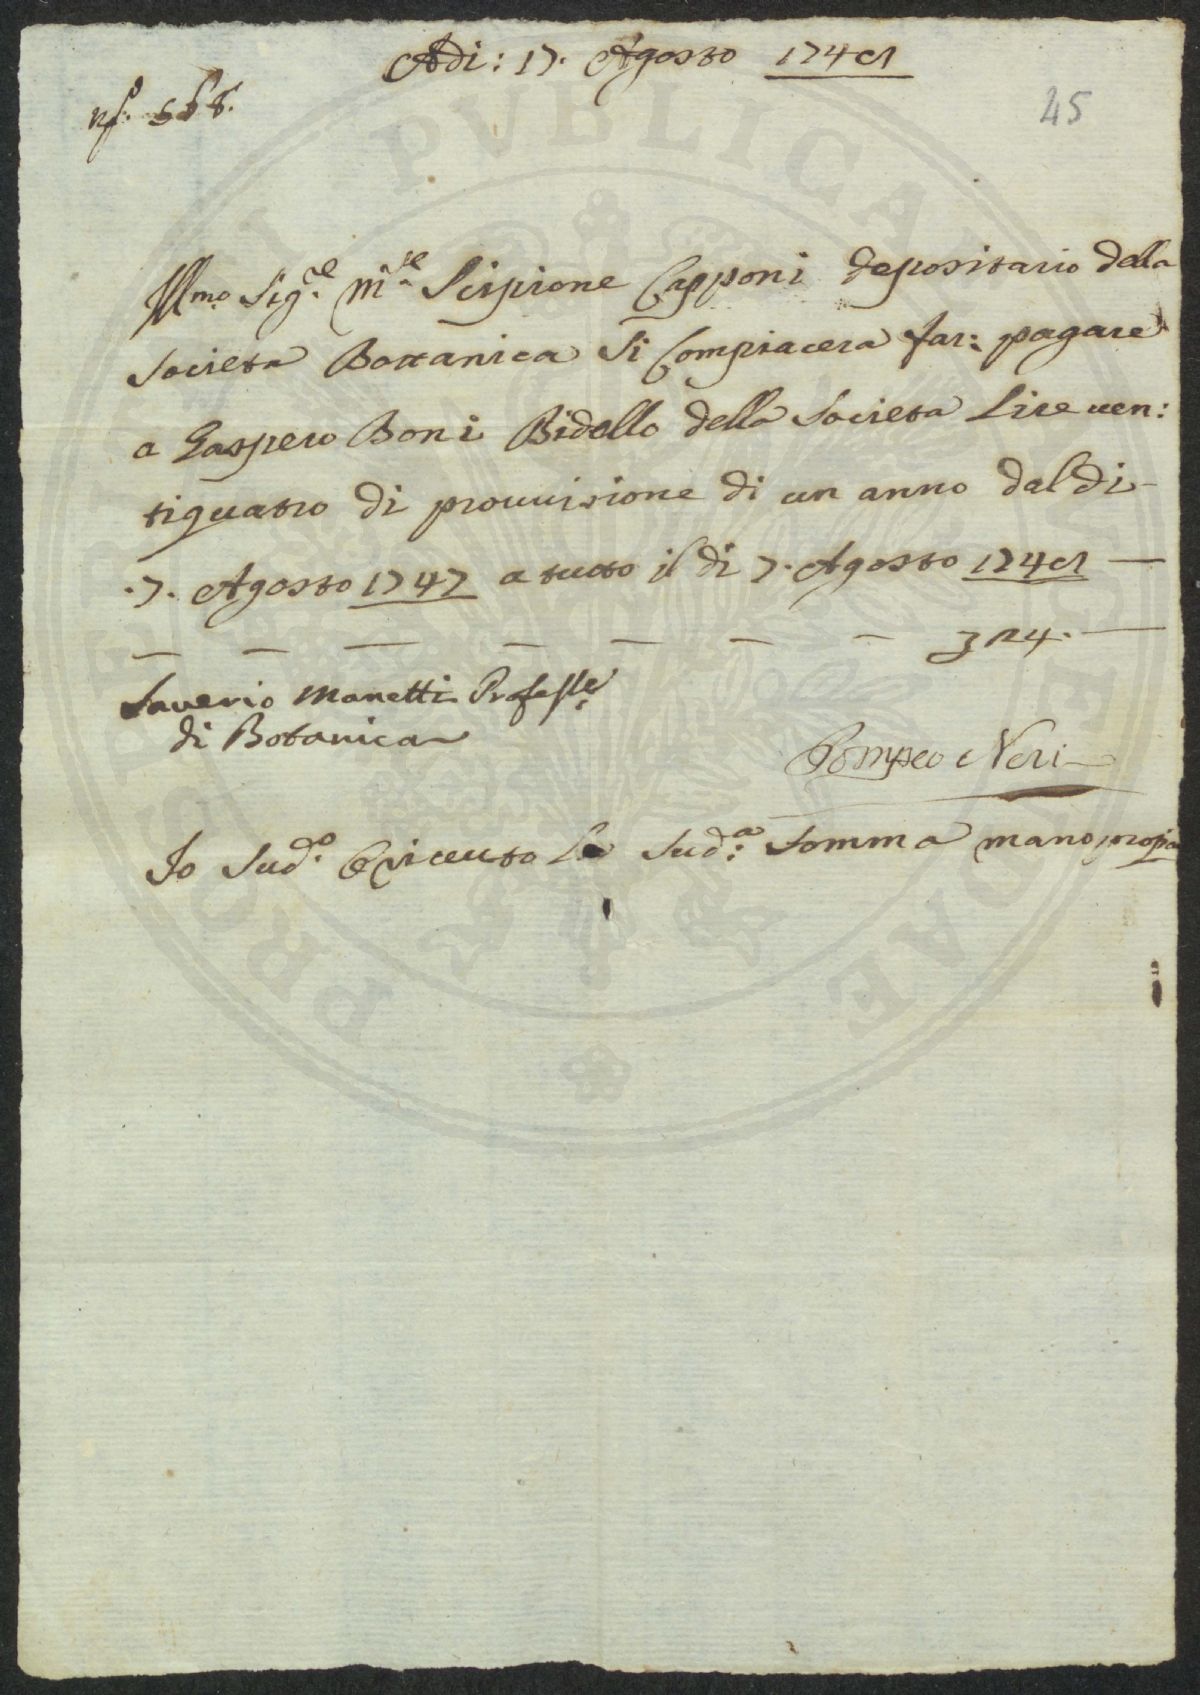 Adi: 17. Agosto 1748
45
Illmo. Sigre. Mse. Scipione Capponi depositario della
Societa Bottanica Si Compiacera far: pagare
a Gaspero Boni Bidello della Societa Lire uen:
tiquatro di prouuisione di un anno dal di
.7. Agosto 1747 a tutto il di 7. Agosto 1748 —
— — — — — — — 24. —
Saverio Manetti Profess.e
di Botanica
Pompeo Neri
Io Sud.o ò riceuto la Sud.a Somma mano propia
PROSPERITATI PVBLICAE AVGENDAE